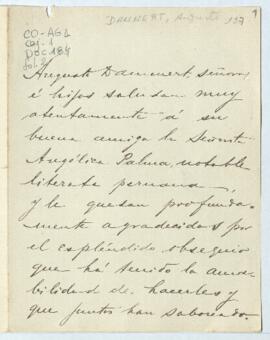 DAMMERT, Augusto 197
1
CO-AGL
Caj. 1
Doc 184
fol. 1
Augusto Dammert, señora
é hijos saludan muy
atentamente á su
buena amiga la Señorita
Angélica Palma, notable
literata peruana,
y le quedan profunda-
mente agradecidos por
el espléndido obsequio
que há tenido la ama-
bilidad de hacerles y
que juntos han saboreado.